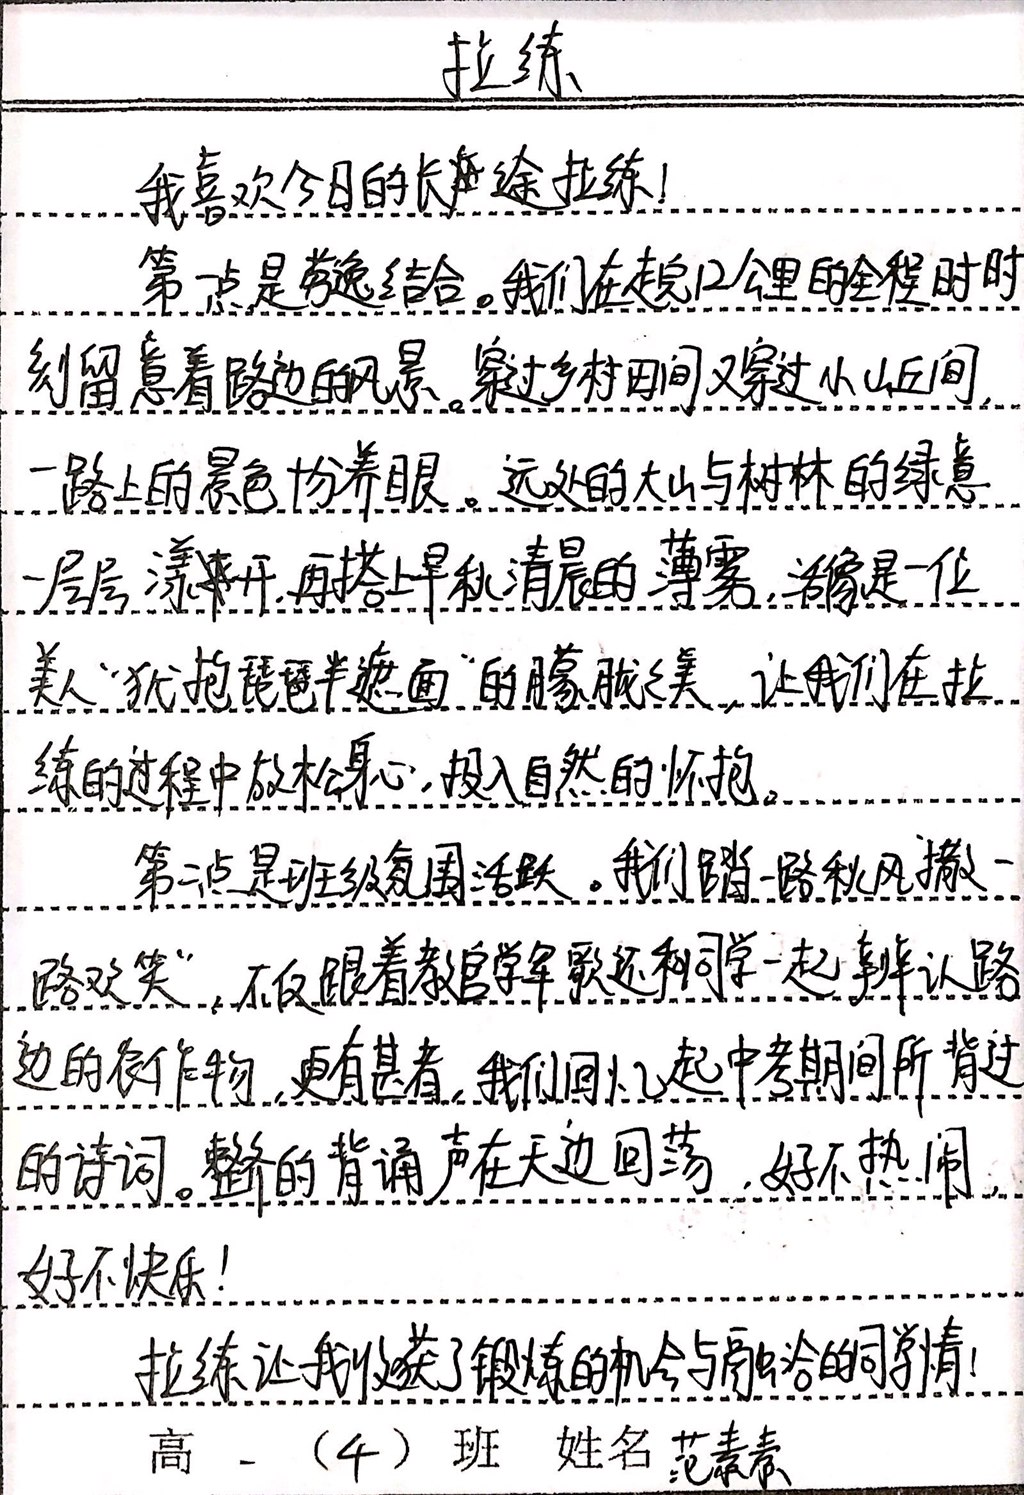 拉练
我喜欢今日的长途拉练！
第一点是劳逸结合。我们在走完12公里的全程时时
刻留意着路边的风景。穿过乡村田间又穿过小山丘间，
一路上的景色十分养眼。远处的大山与树林的绿意
一层层漾开，再搭上早秋清晨的薄雾，活像是一位
美人“犹抱琵琶半遮面”的朦胧之美，让我们在拉
练的过程中放松身心，投入自然的怀抱。
第二点是班级氛围活跃。我们踏一路秋风撒一
路欢笑”，不仅跟着教官学军歌还和同学一起辨认路
边的农作物，更有甚者，我们回忆起中考期间所背过
的诗词。整齐的背诵声在天边回荡，好不热闹，
好不快乐！
拉练让我收获了锻炼的机会与融洽的同学情！
高一（4）班 姓名 范素素